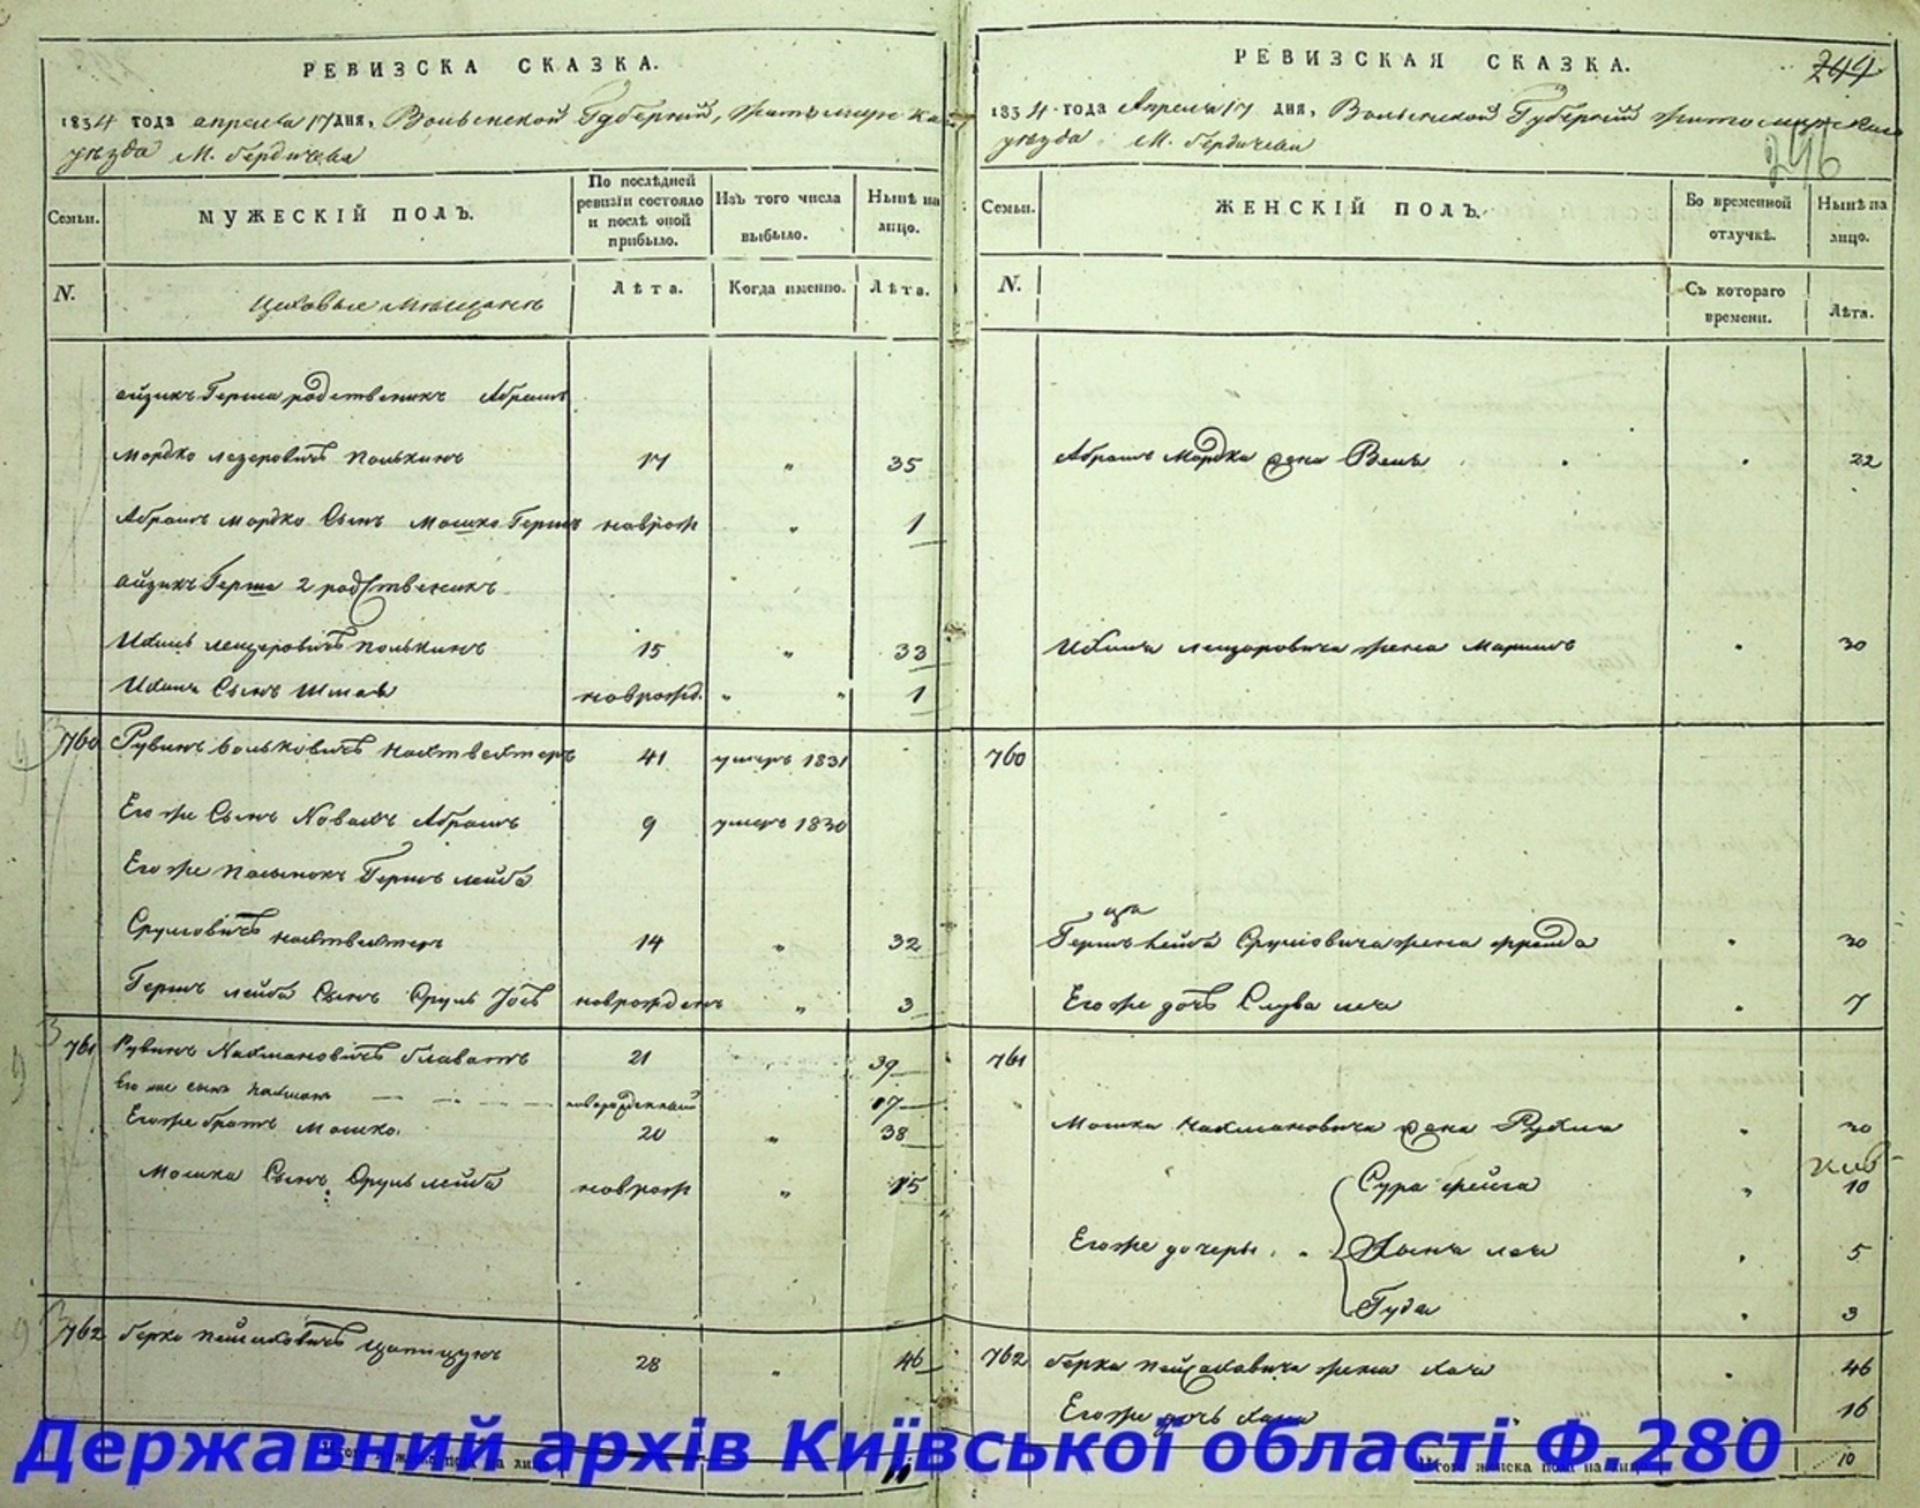 РЕВИЗСКА СКАЗКА.
1834 года апреля 17 дня, Волынской Губернии, Житомирска
уезда М. Бердичева
Семьи.
МУЖЕСКІЙ ПОЛЪ.
По послѣдней ревизіи состояло и послѣ оной прибыло.
Изъ того числа выбыло.
Нынѣ на лицо.
N.
Цеховые Мещане
Лѣта.
Когда именно.
Лѣта.
Айзикъ Герша родственикъ Абрамъ
Мордко Лезеровичъ Полькинъ 17 " 35
Абрамъ Мордко Сынъ Мошко Гершъ новрож " 1
Айзикъ Герша 2 родственикъ
Ицыкъ Лейзеровичъ Полькинъ 15 " 33
Сынъ новрожд. " " 1
760 Рувинъ Вольковичъ умеръ 1831 41
Его же Сынъ Абрамъ 9 умеръ 1830
Его же Пасынокъ Гершъ Лейба
Сруловичъ 14 " 32
Гершъ Лейба Сынъ Сруль Іосъ новрожденъ " 3
761 Рувинъ Нахмановичъ Главатъ 21 39
Его же сынъ Нахманъ новорожденный 17
Его же братъ Мошко. 20 " 38
Мошка Сынъ Сруль Лейба новрож " 15
762 Берко 28 " 46
11
РЕВИЗСКАЯ СКАЗКА.
244
1834 года Апреля 17 дня, Волынской Губернии Житомирскаго
246
уезда М. Бердичева
Семьи.
ЖЕНСКІЙ ПОЛЪ.
Во временной отлучкѣ.
Нынѣ на лицо.
N.
Съ котораго времени.
Лѣта.
Абрамъ Мордка жена 22
жена Маримъ 30
760
Гершъ Лейба Сруловича жена Фрейда " 30
Его же дочь Слува Леа " 7
761
Мошка Нахмановича жена Рухля " 30
Сура Фейга " 10
Его же дочеры " Леа 5
Гуда 3
762 Берка жена Хая 46
Его же дочь Хана 16
Итого женска пола на лицо 10
Державний архів Київської області Ф.280